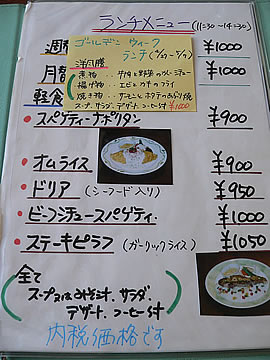 ランチメニュー (11:30 ~ 14:30)
ゴールデン ウィーク
ランチ
洋風膳
煮物
揚げ物 エビとカキのフライ
焼き物
スープ、サラダ、デザート、コーヒー付 ¥1000
週替 ¥1000
月替 ¥1000
軽食
・スパゲティーナポリタン ¥900
・オムライス ¥900
・ドリア (シーフード入り) ¥950
・ビーフシチュースパゲティ. ¥1000
・ステーキピラフ (ガーリックライス) ¥1050
全て
スープ又はみそ汁、サラダ、
デザート、コーヒー付
内税価格です